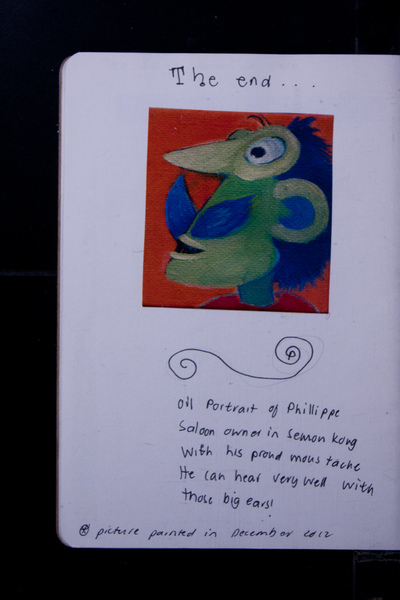 The end....
oil Portrait of Phillippe
Saloon owner in Semon Kong
With his proud moustache
He can hear very well with
those big ears!
picture painted in December 2012